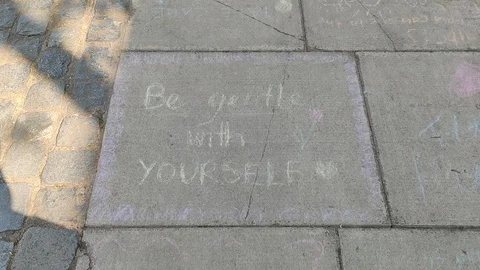 Be gentle
with
YOURSELF ♥